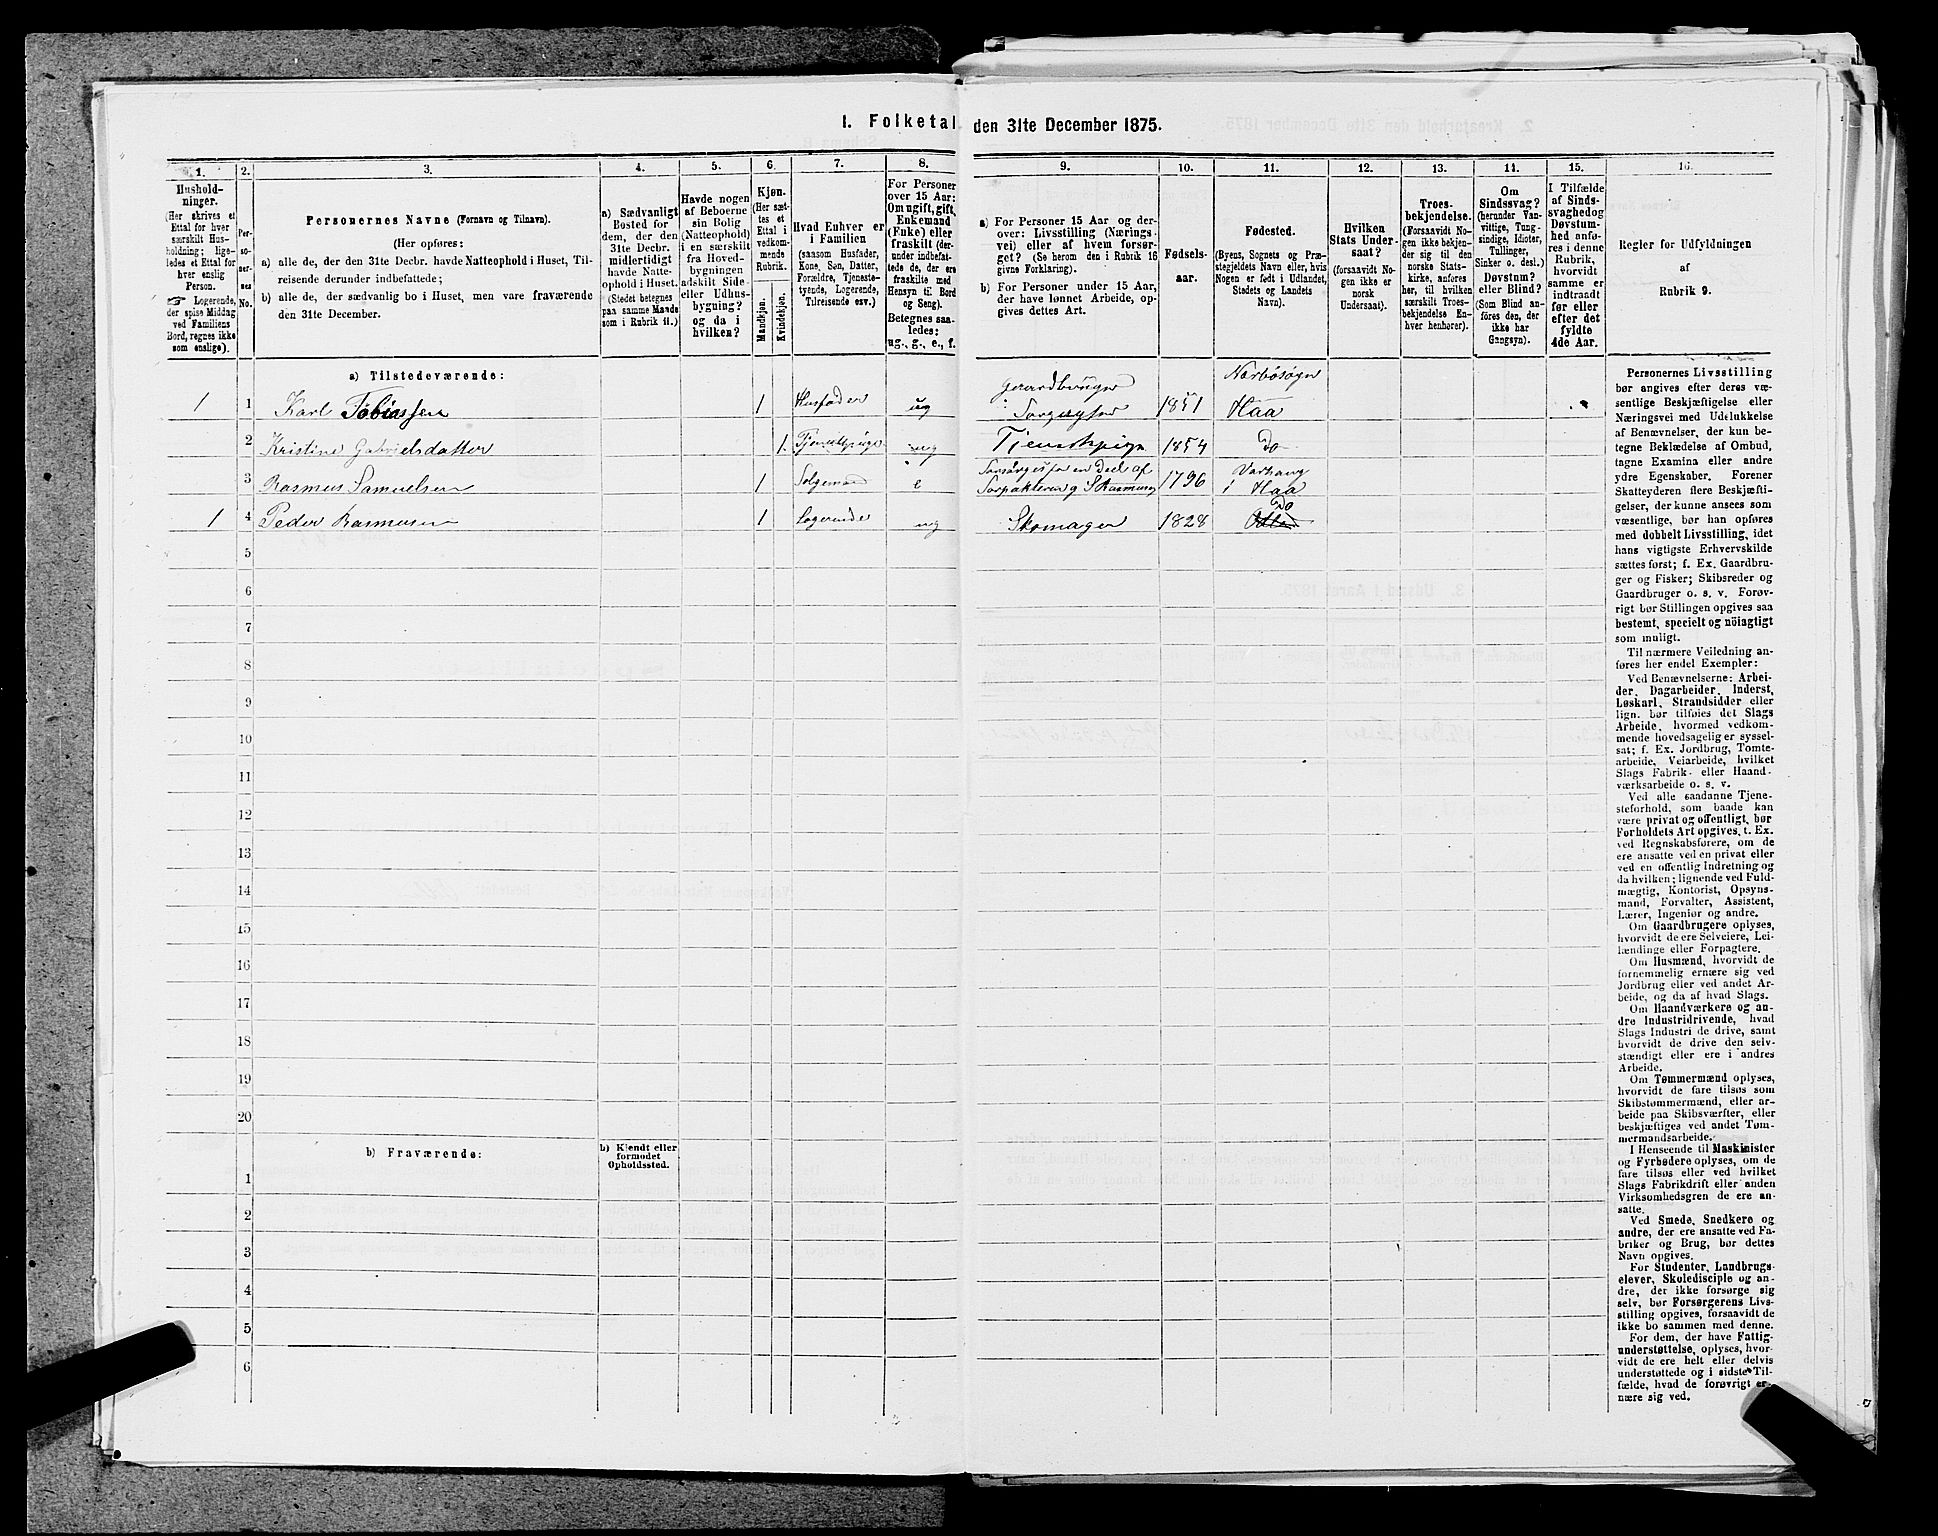 1. Folketal den 31te December 1875.
1. 2. 3. 4. 5. 6. 7. 8. 9. 10. 11. 12. 13. 14. 15. 16.
Hushold-
ninger.
(Her skrives et
Ettal for hver
særskilt Hus-
holdning; lige-
ledes et Ettal for
hver enslig
Person.
☞ Logerende,
der spise Middag
ved Familiens
Bord, regnes ikke
som enslige).
Per-
so-
ner-
nes
No.
Personernes Navne (Fornavn og Tilnavn).
(Her opføres:
a) alle de, der den 31te Decbr. havde Natteophold i Huset, Til-
reisende derunder indbefattede;
b) alle de, der sædvanlig bo i Huset, men vare fraværende
den 31te December.
a) Sædvanligt
Bosted for
dem, der den
31te Decbr.
midlertidigt
havde Natte-
ophold i Huset.
(Stedet betegnes
paa samme Maade
som i Rubrik 11.)
Havde nogen
af Beboerne
sin Bolig
(Natteophold)
i en særskilt
fra Hoved-
bygningen
adskilt Side-
eller Udhus-
bygning?
og da i
hvilken?
Kjøn.
(Her sæt-
tes et
Ettal i
vedkom-
mende
Rubrik.
Mandkjøn.
Kvindekjøn.
Hvad Enhver er
i Familien
(saasom Husfader,
Kone, Søn, Datter,
Forældre, Tjeneste-
tyende, Logerende,
Tilreisende osv.)
For Personer
over 15 Aar:
Om ugift, gift,
Enkemand
(Enke) eller
fraskilt (der-
under indbefat-
tede de, der ere
fraskilte med
Hensyn til Bord
og Seng).
Betegnes saa-
ledes:
ug., g., e., f.
a) For Personer 15 Aar og der-
over: Livsstilling (Nærings-
vei) eller af hvem forsør-
get? (Se herom den i Rubrik 16
givne Forklaring).
b) For Personer under 15 Aar,
der have lønnet Arbeide, op-
gives dettes Art.
Fødsels-
aar.
Fødested.
(Byens, Sognets og Præ-
stegjeldets Navn eller, hvis
Nogen er født i Udlandet,
Stedets og Landets
Navn).
Hvilken
Stats Under-
saat?
(forsaavidt No-
gen ikke er
norsk
Undersaat).
Troes-
bekjendelse.
(Forsaavidt No-
gen ikke bekjen-
der sig til den
norske Stats-
kirke, anføres
her, til hvilken
særskilt Troes-
bekjendelse En-
hver henhører).
Om
Sindssvag?
(herunder Van-
vittige, Tung-
sindige, Idioter,
Tullinger,
Sinker o. desl.)
Døvstum?
eller Blind?
(Som Blind an-
føres den, der
ikke har
Gangsyn).
I Tilfælde
af Sinds-
svaghed og
Døvstum-
hed anfø-
res i denne
Rubrik,
hvorvidt
samme er
indtraadt
før eller
efter det
fyldte
4de Aar.
Regler for Udfyldningen
af
Rubrik 9.
a) Tilstedeværende:
1 1 Karl Tobiassen 1 Husfader ug Gaardbruger 1851 Narbösogn Haa
2 Kristine Gabrielsdatter 1 ug Tjenestpige 1854 Do
3 Rasmus Samuelsen 1 e 1796 Varhaug i Haa
1 4 Peder Rasmusen 1 Logerende ug Skomager 1828 Do
5
6
7
8
9
10
11
12
13
14
15
16
17
18
19
20
b) Fraværende:
b) Kjendt eller
formodet
Opholdssted.
1
2
3
4
5
6
Personernes Livsstilling
bør angives efter deres væ-
sentlige Beskjæftigelse eller
Næringsvei med Udelukkelse
af Benævnelser, der kun be-
tegne Beklædelse af Ombud,
tagne Examina eller andre
ydre Egenskaber. Forener
Skatteyderen flere Beskjæfti-
gelser, der kunne ansees som
væsentlige, bør han opføres
med dobbelt Livsstilling, idet
hans vigtigste Erhvervskilde
sættes først; f. Ex. Gaardbru-
ger og Fisker; Skibsreder og
Gaardbruger o. s. v. Forøv-
rigt bør Stillingen opgives saa
bestemt, specielt og nöiagtigt
som muligt.
Til nærmere Veiledning an-
føres her endel Exempler:
Ved Benævnelserne: Arbei-
der, Dagarbeider, Inderst,
Løskarl, Strandsidder eller
lign. bør tilføies det Slags
Arbeide, hvormed vedkom-
mende hovedsagelig er syssel-
sat; f. Ex. Jordbrug, Tomte-
arbeide, Veiarbeide, hvilket
Slags Fabrik- eller Haand-
værksarbeide o. s. v.
Ved alle saadanne Tjene-
steforhold, som baade kan
være privat og offentligt, bør
Forholdets Art opgives, t. Ex.
ved Regnskabsførere, om de
ere ansatte ved en privat eller
ved en offentlig Indretning og
da hvilken; lignende ved Fuld-
mægtig, Kontorist, Opsyns-
mand, Forvalter, Assistent,
Lærer, Ingeniør og andre.
Om Gaardbrugere oplyses,
hvorvidt de ere Selveiere, Lei-
lændinge eller Forpagtere.
Om Husmænd, hvorvidt de
fornemmelig ernære sig ved
Jordbrug eller ved andet Ar-
beide, og da af hvad Slags.
Om Haandværkere og an-
dre Industridrivende, hvad
Slags Industri de drive, samt
hvorvidt de drive den selv-
stændigt eller ere i andres
Arbeide.
Om Tømmermænd oplyses,
hvorvidt de fare tilsøs som
Skibstømmermænd, eller ar-
beide paa Skibsværfter, eller
beskjæftiges ved andet Tøm-
mermandsarbeide.
I Henseende til Maskinister
og Fyrbødere oplyses, om de
fare tilsøs eller ved hvilket
Slags Fabrikdrift eller anden
Virksomhedsgren de ere an-
satte.
Ved Smede, Snedkere og
andre, der ere ansatte ved Fa-
briker og Brug, bør dettes
Navn opgives.
For Studenter, Landbrugs-
elever, Skoledisciple og an-
dre, der ikke forsørge sig
selv, bør Forsørgerens Livs-
stilling opgives, forsaavidt de
ikke bo sammen med denne.
For dem, der have Fattig-
understøttelse, oplyses, hvor-
vidt de ere helt eller delvis
understøttede og i sidste Til-
fælde, hvad de forøvrigt er-
nære sig ved.